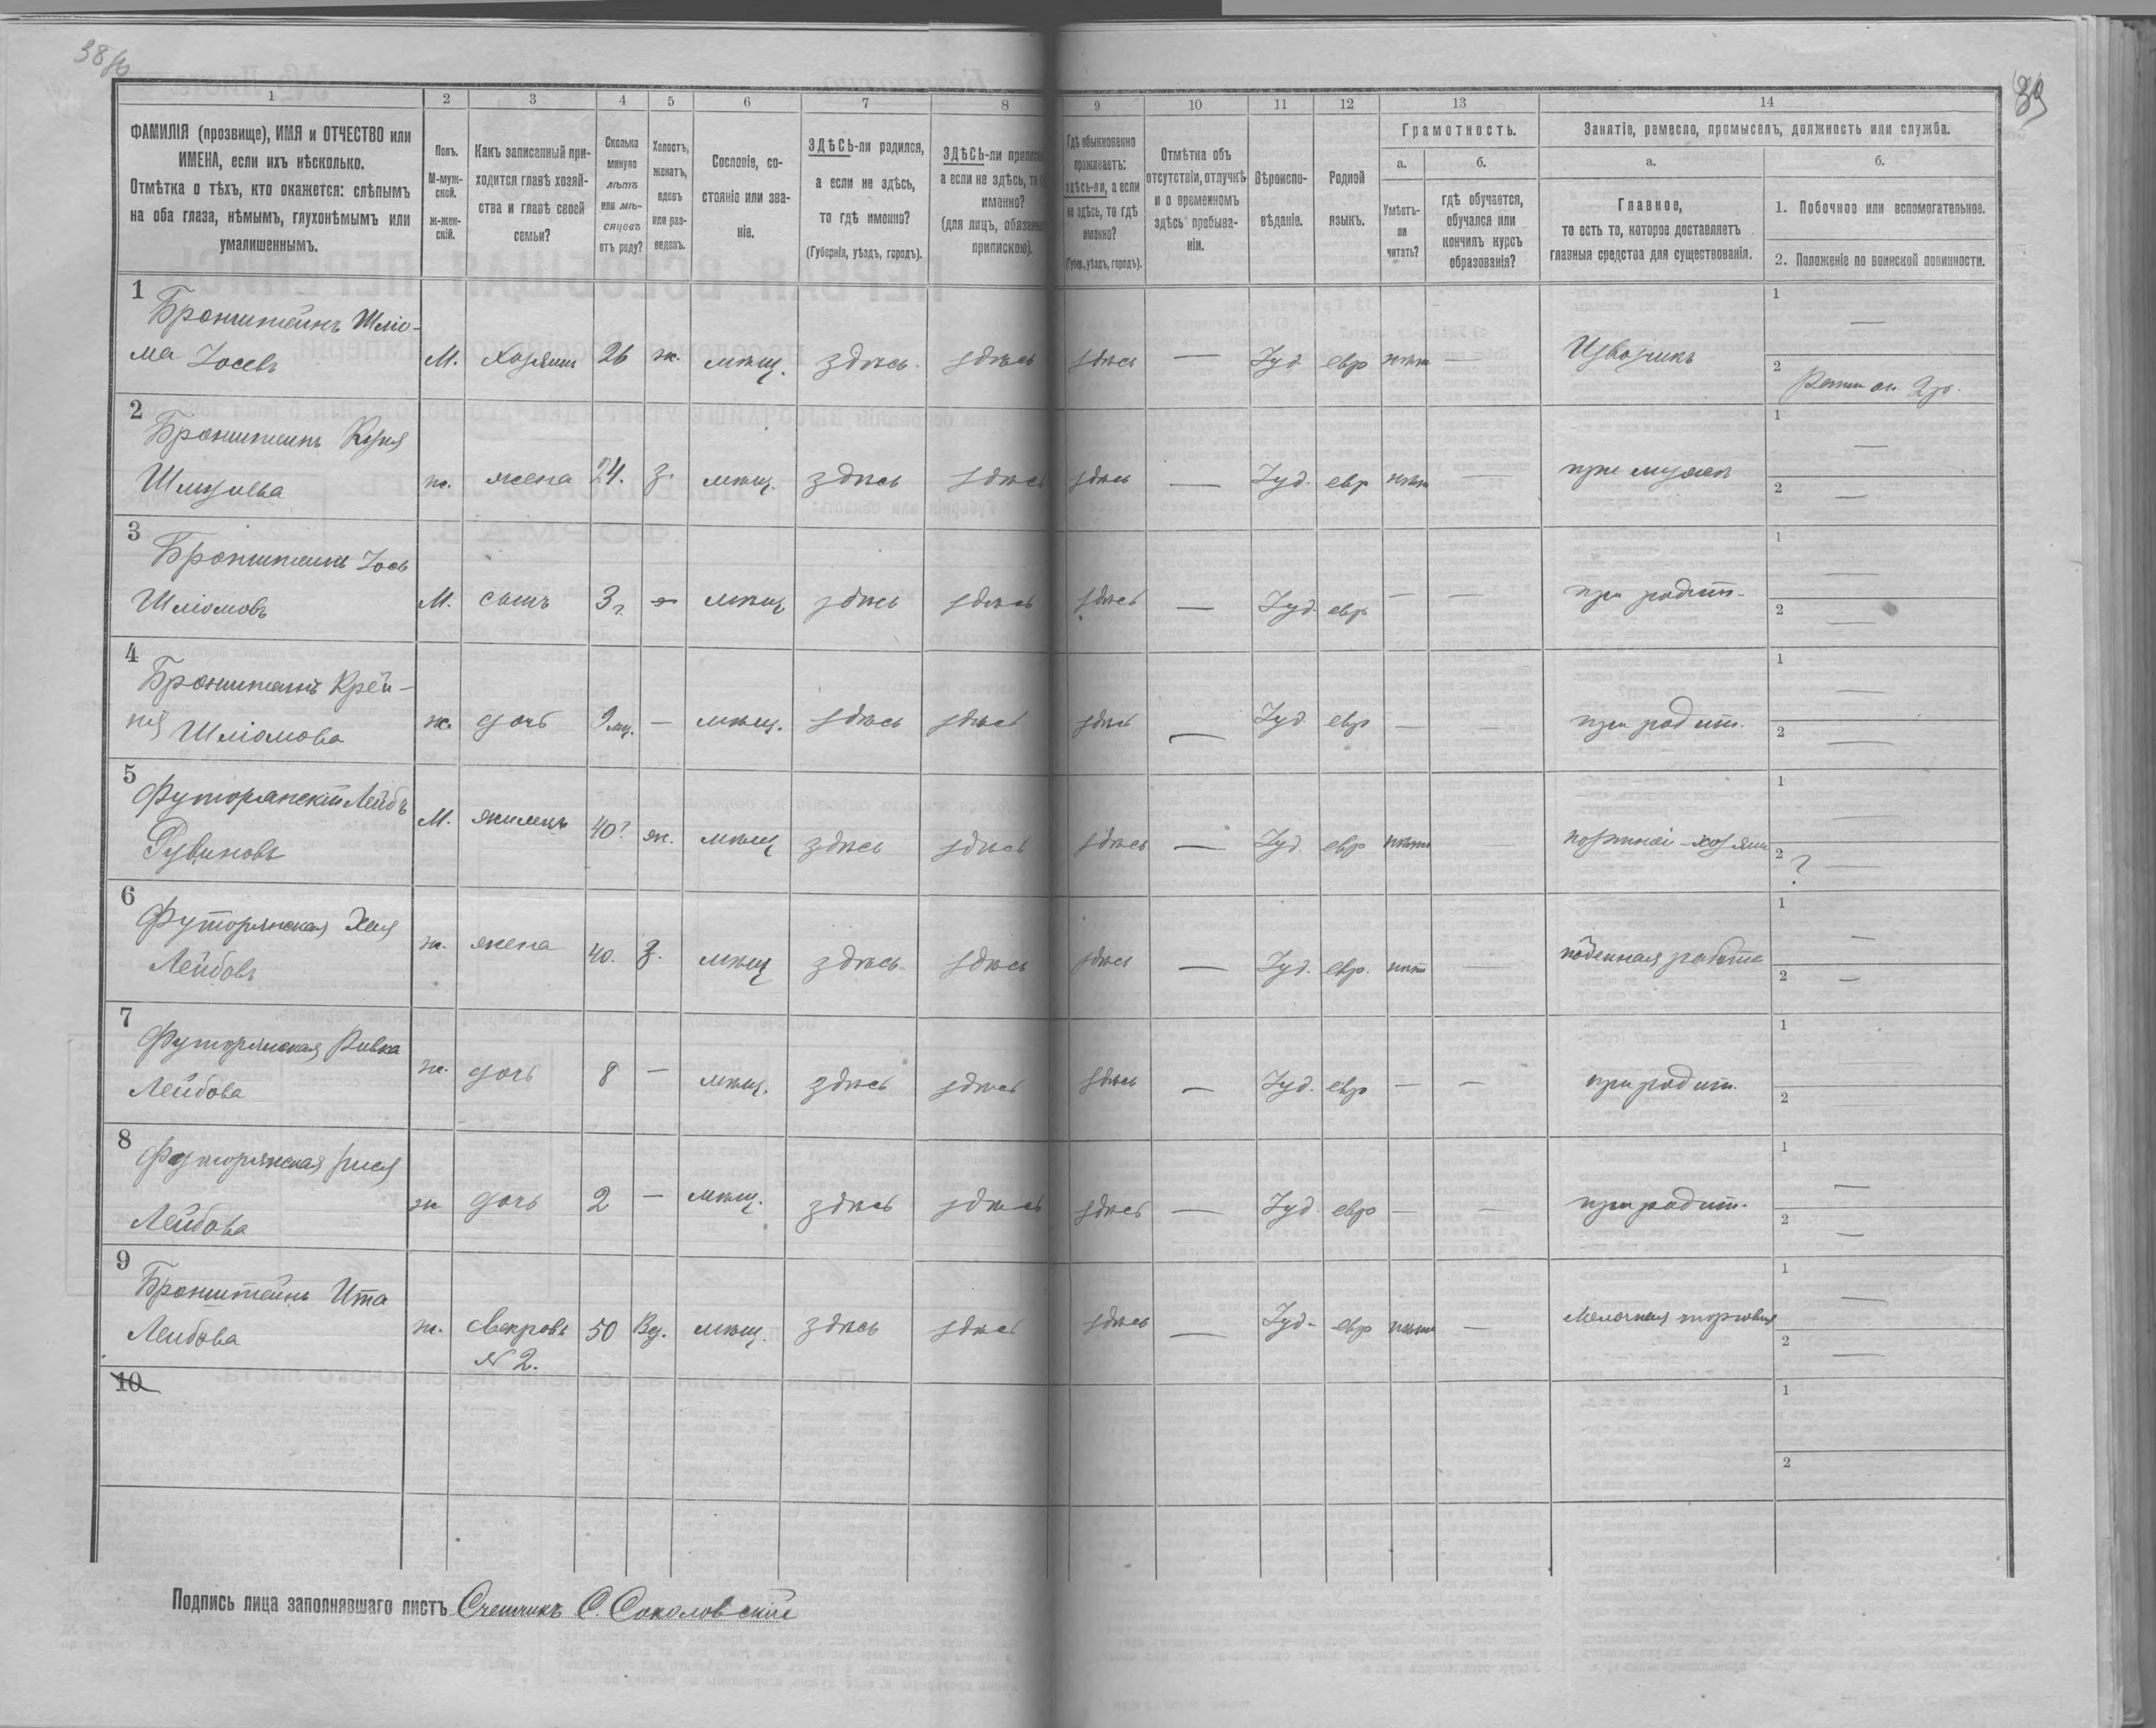 38 об
39
1 2 3 4 5 6 7 8 9 10 11 12 13 14
ФАМИЛІЯ (прозвище), ИМЯ и ОТЧЕСТВО или
ИМЕНА, если ихъ нѣсколько.
Отмѣтка о тѣхъ, кто окажется: слѣпымъ
на оба глаза, нѣмымъ, глухонѣмымъ или
умалишеннымъ.
Полъ.
М-муж-
ской.
ж-жен-
скій.
Какъ записанный при-
ходится главѣ хозяй-
ства и главѣ своей
семьи?
Сколько
минуло
лѣтъ
или мѣ-
сяцевъ
отъ роду?
Холостъ,
женатъ,
вдовъ
или раз-
веденъ.
Сословіе, со-
стояніе или зва-
ніе.
ЗДѢСЬ-ли родился,
а если не здѣсь,
то гдѣ именно?
(Губернія, уѣздъ, городъ).
ЗДѢСЬ-ли
а если не здѣсь,
именно?
(для лицъ,
припискою).
Гдѣ обыкновенно
проживаетъ:
здѣсь-ли, а если
не здѣсь, то гдѣ
именно?
(Губер., уѣздъ, городъ).
Отмѣтка объ
отсутствіи, отлучкѣ
и о временномъ
здѣсь пребыва-
ніи.
Вѣроиспо-
вѣданіе.
Родной
языкъ.
Грамотность.
а.
Умѣетъ-
ли
читать?
б.
гдѣ обучается,
обучался или
кончилъ курсъ
образованія?
Занятіе, ремесло, промыселъ, должность или служба.
а.
Главное,
то есть то, которое доставляетъ
главныя средства для существованія.
б.
1. Побочное или вспомогательное.
2. Положеніе по воинской повинности.
1
Бронштейнъ Шлio-
ма Iосевъ М. Хозяинъ 26 ж. мѣщ. здѣсь здѣсь здѣсь — Iуд евр нѣтъ — Извозчикъ
1 —
2
2
Бронштейнъ
ж. жена 24. З. мѣщ. здѣсь здѣсь здѣсь — Iуд. евр нѣтъ — при мужѣ
1 —
2 —
3
Бронштейнъ Iось
Шлiомовъ М. сынъ 3 г. мѣщ здѣсь здѣсь здѣсь — Iуд. евр — — при родит.
1 —
2 —
4
Бронштейнъ Крей-
ня Шлiомова ж. дочь 9 мц. — мѣщ. здѣсь здѣсь здѣсь — Iуд. евр — — при родит.
1 —
2 —
5
Футорянскій Лейбъ
Рувиновъ М. жилецъ 40? ж. мѣщ здѣсь здѣсь здѣсь — Iуд. евр нѣтъ
1 —
2 ? —
6
Футорянская Хая
Лейбовъ ж. жена 40. З. мѣщ здѣсь здѣсь здѣсь — Iуд. евр. нѣтъ — поденная работа
1 —
2 —
7
Футорянская Ривка
Лейбова ж. дочь 8 — мѣщ. здѣсь здѣсь здѣсь — Iуд. евр — — при родит.
1 —
2 —
8
Футорянская
Лейбова ж дочь 2 — мѣщ. здѣсь здѣсь здѣсь — Iуд. евр — — при родит.
1 —
2 —
9
Бронштейнъ Ита
Лейбова ж. свекровь 50 Вд. мѣщ. здѣсь здѣсь здѣсь — Iуд. евр нѣтъ — Мелочная торговля
№ 2.
1 —
2 —
10
1
2
Подпись лица заполнявшаго листъ Счетчикъ С. Соколовскій